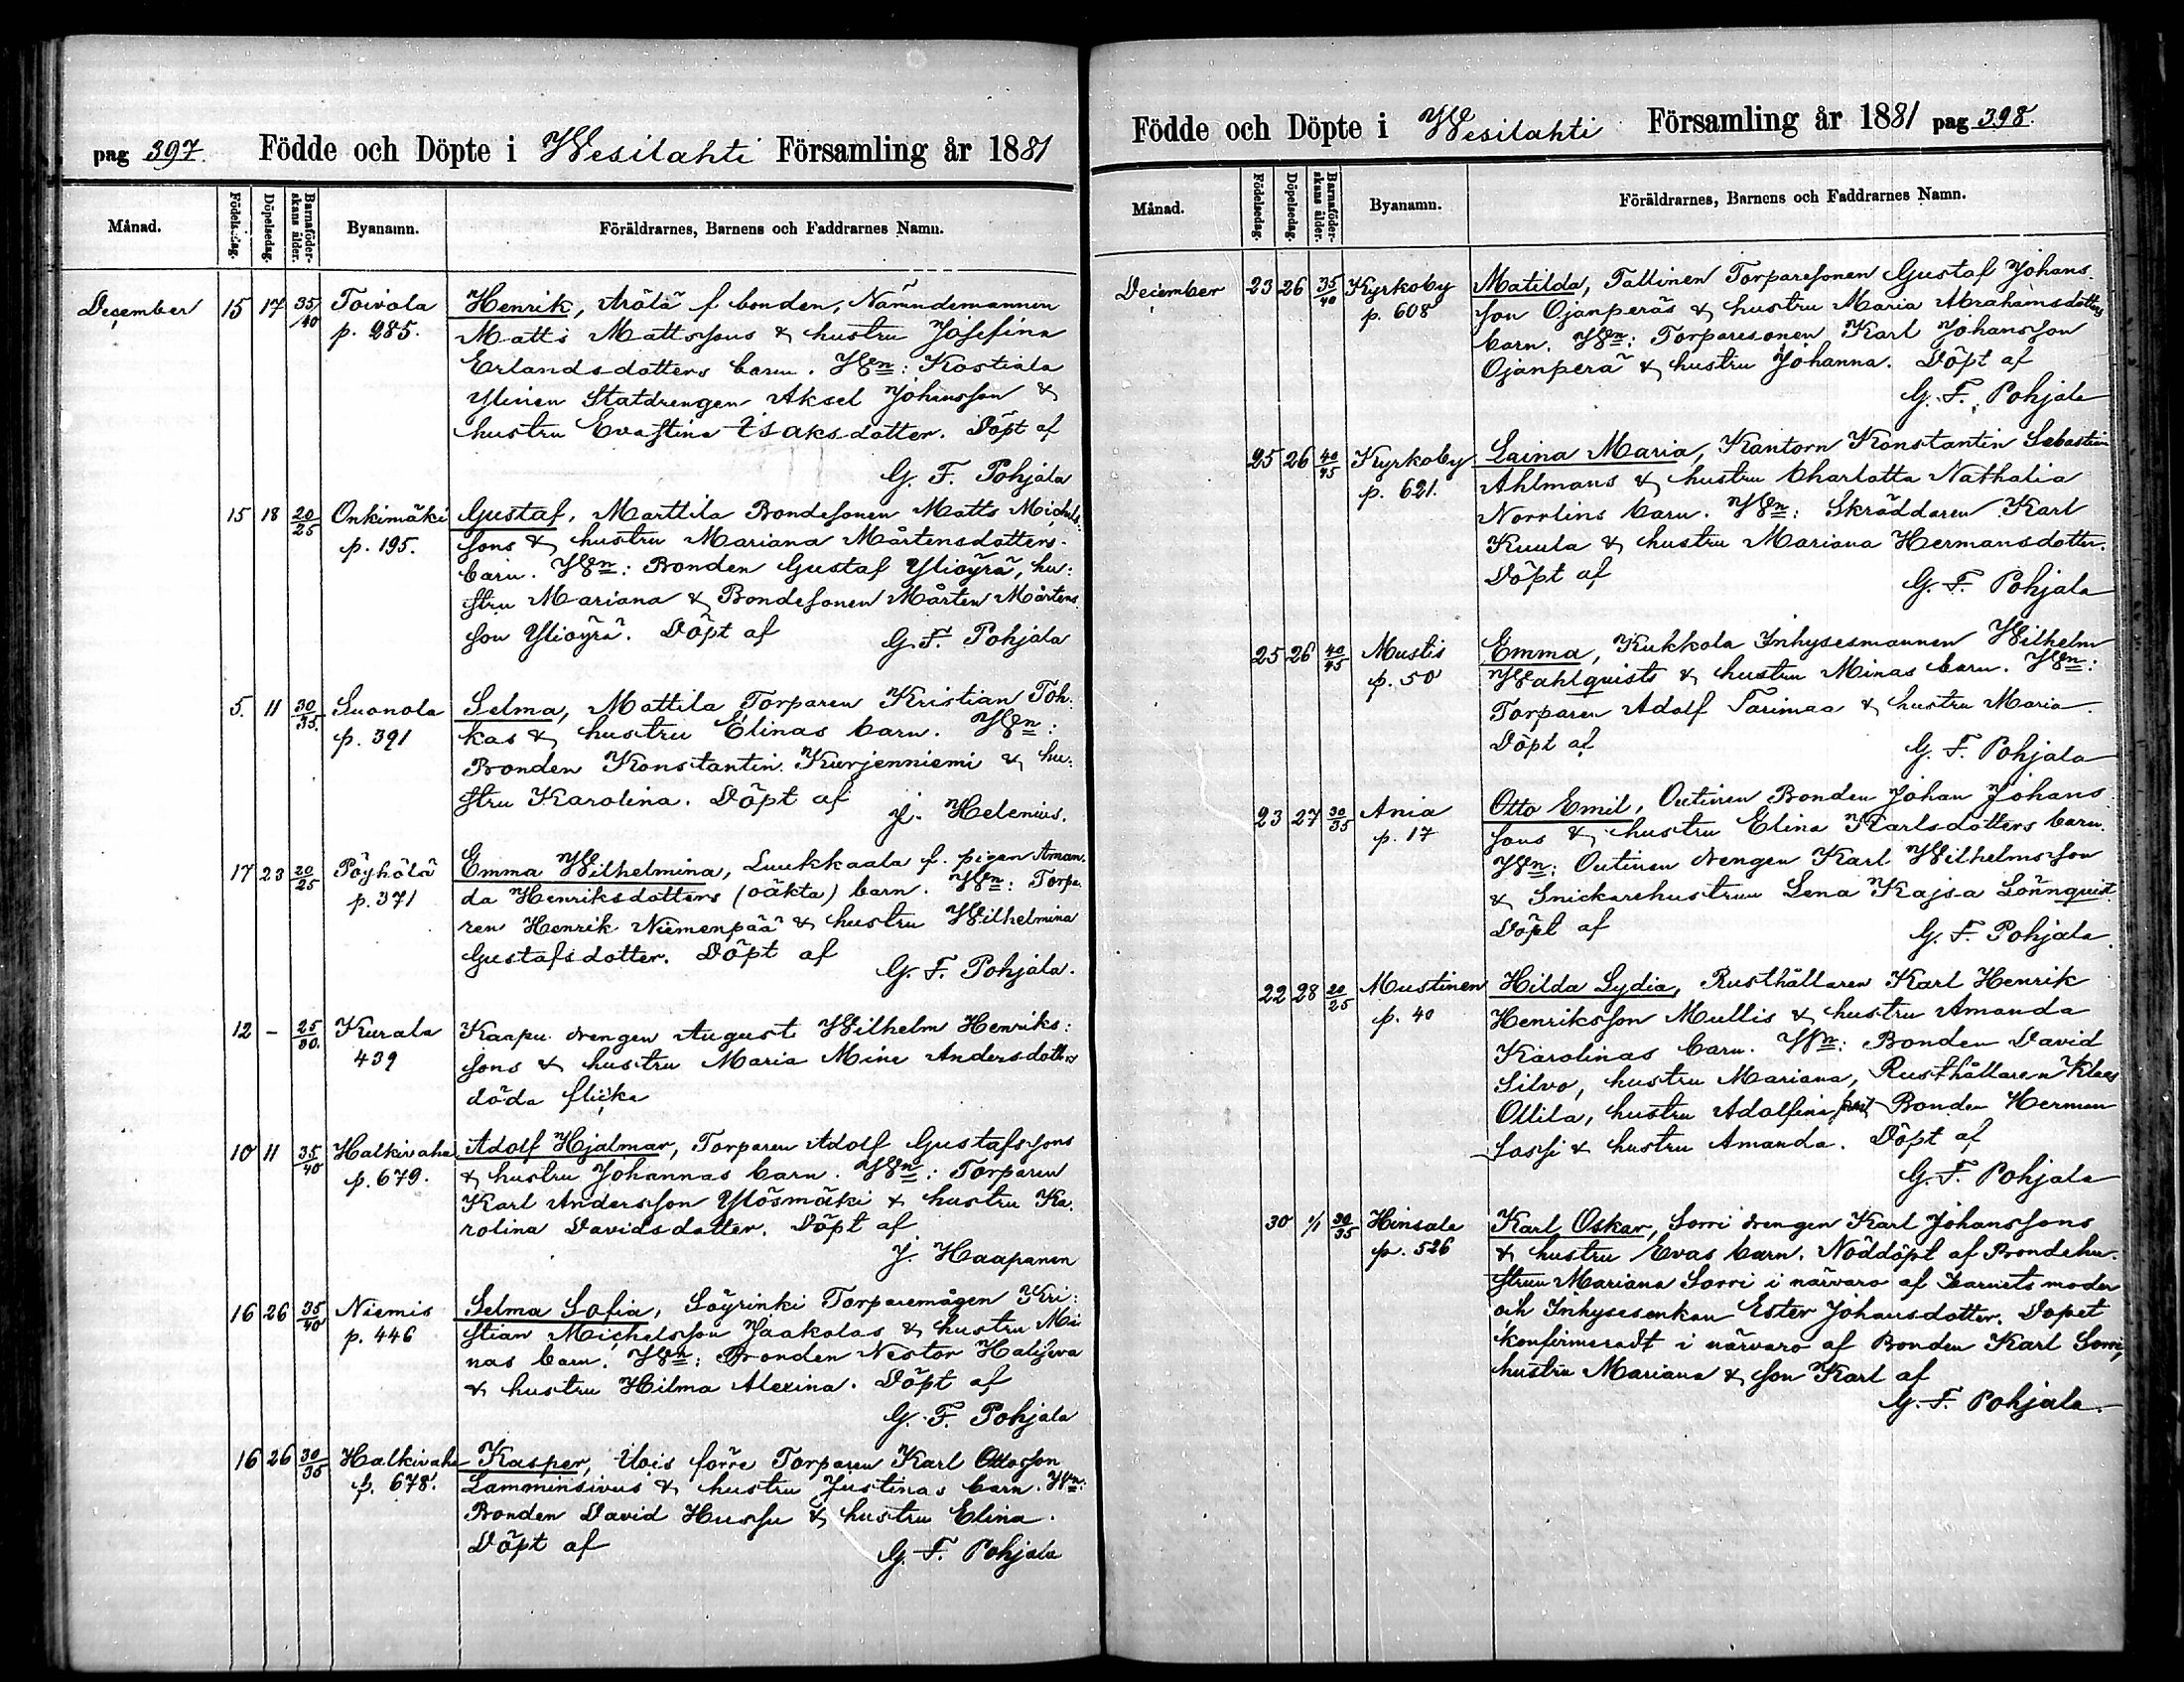 pag 397. Födde och Döpte i Wesilahti Församling år 1881
Månad. Födelsedag. Döpelsedag. Barnaföderskans ålder. Byanamn. Föräldrarnes, Barnens och Faddrarnes Namn.
December 15 17 35/40 Toivola Henrik, Arölä f bonden, Nämndemannen
p. 285. Matts Mattssons & hustru Josefina
Erlandsdotters barn. Wn: Kostiala
Ylinen Statdrengen Aksel Johansson &
hustru Evastina Isaksdotter. Döpt af
G. F. Pohjala
15 18 20/25 Onkimäki Gustaf, Marttila Bondesonen Matts Michels:
p. 195. sons & hustru Mariana Mårtensdotters
barn. Wn: Bonden Gustaf Ylioÿrä, hu:
stru Mariana & Bondesonen Mårten Mårtens
son Ylioÿrä. Döpt af G. F. Pohjala
5. 11 30/35. Suonola Selma, Mattila Torparen Kristian Toh:
p. 391 kas & hustru Elinas barn. Wn:
Bonden Konstantin Kurjenniemi & hu:
stru Karolina. Döpt af J. Helenius.
17 23 20/25 Pöyhölä Emma Wilhelmina, Luukkaala f. pigan Aman.
p. 371 da Henriksdotters (oäkta) barn. Wn: Torpa
ren Henrik Niemenpää & hustru Wilhelmina
Gustafsdotter. Döpt af G. F. Pohjala.
12 - 25/30. Kurala Kaapu drengen August Wilhelm Henriks:
439 sons & hustru Maria Mina Andersdotters
döda flicka
10 11 35/40 Halkivaha Adolf Hjalmar, Torparen Adolf Gustafssons
p. 679. & hustru Johannas barn. Wn: Torparen
Karl Andersson Ylösmäki & hustru Ka.
rolina Davidsdotter. Döpt af
J. Haapanen
16 26 35/40 Niemis Selma Sofia, Söyrinki Torparemågen Kri:
p. 446 stian Michelsson Jaakolas & hustru Mi
nas barn. Wn: Bonden Nestor
& hustru Hilma Alexina. Döpt af
G. F. Pohjala
16 26 30/35 Halkivaha Kasper, förre Torparen Karl Ottosson
p. 678. Lamminsivus & hustru Justinas barn. Wn:
Bonden David Hussu & hustru Elina.
Döpt af G. F. Pohjala
Födde och Döpte i Wesilahti Församling år 1881 pag 398.
Månad. Födelsedag. Döpelsedag. Barnaföderskans ålder. Byanamn. Föräldrarnes, Barnens och Faddrarnes Namn.
December 23 26 35/40 Kyrkoby Matilda, Tallinen Torparesonen Gustaf Johans
p. 608 son Ojanperäs & hustru Maria Abrahamsdotters
barn. Wn: Torparesonen Karl Johansson
Ojanperä & hustru Johanna. Döpt af
G. F. Pohjala
25 26 40/45 Kyrkoby Laina Maria, Kantorn Konstantin Sebastian
p. 621. Ahlmans & hustru Charlotta Nathalia
Norrlins barn. Wn: Skräddaren Karl
Kuula & hustru Mariana Hermansdotter.
Döpt af G. F. Pohjala
25 26 40/45 Mustis Emma, Kukkola Inhysesmannen Wilhelm
p. 50 Wahlquists & hustru Minas barn. Wn:
Torparen Adolf Tarimaa & hustru Maria.
Döpt af G. F. Pohjala
23 27 30/35 Ania Otto Emil, Outinen Bonden Johan Johans
p. 17 sons & hustru Elina Karlsdotters barn.
Wn: Outinen drengen Karl Wilhelmsson
& Snickarehustrun Lena Kajsa Lönnquist.
Döpt af G. F. Pohjala.
22 28 20/25 Mustinen Hilda Lydia, Rusthållaren Karl Henrik
p. 40 Henriksson Mullis & hustru Amanda
Karolinas barn. Wn: Bonden David
Silvo, hustru Mariana, Rusthållaren Klaes
Ollila, hustru Adolfina Bonden Herman
Sassi & hustru Amanda. Döpt af
G. F. Pohjala
30 1/1 30/35 Hinsala Karl Oskar, Sorri drengen Karl Johanssons
p. 526 & hustru Evas barn. Nöddöpt af Bondehu.
strun Mariana Sorri i närvaro af barnets moder
och Inhysesenkan Ester Johansdotter. Dopet
konfirmeradt i närvaro af Bonden Karl Sorri,
hustru Mariana & son Karl af
G. F. Pohjala.